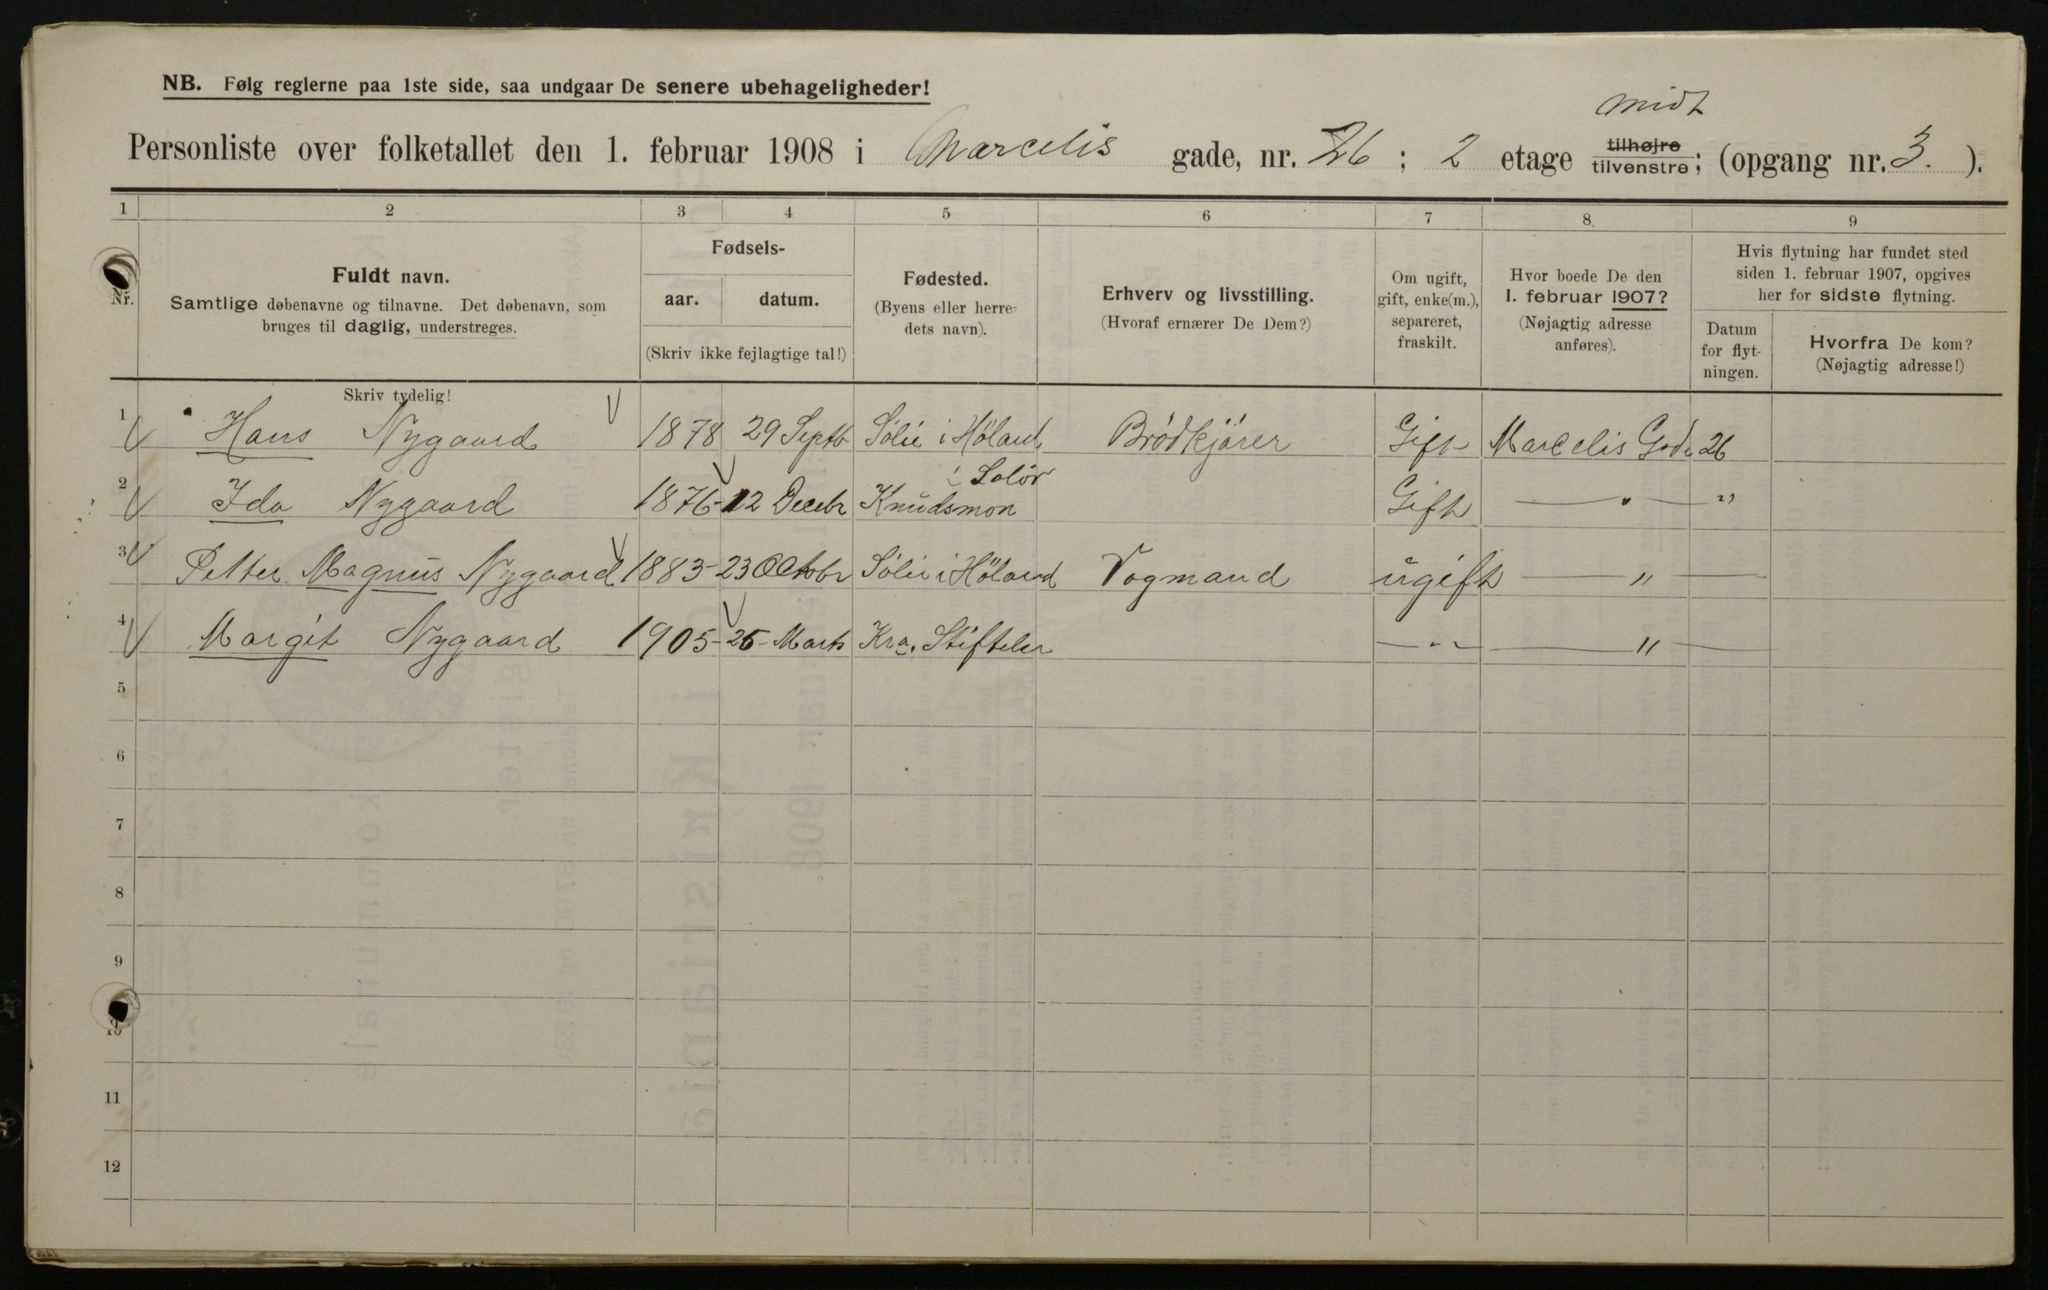 NB. Følg reglerne paa 1ste side, saa undgaar De senere ubehageligheder!
midt
Personliste over folketallet den 1. februar 1908 i Marcelis gade, nr. 26 ; 2 etage tilhøjre tilvenstre; (opgang nr. 3. ).
1 2 3 4 5 6 7 8 9
Nr.
Fuldt navn.
Samtlige døbenavne og tilnavne. Det døbenavn, som
bruges til daglig, understreges.
Fødsels-
aar. datum.
(Skriv ikke fejlagtige tal!)
Fødested.
(Byens eller herre-
dets navn).
Erhverv og livsstilling.
(Hvoraf ernærer De Dem?)
Om ugift,
gift, enke(m.),
separeret,
fraskilt.
Hvor boede De den
1. februar 1907?
(Nøjagtig adresse
anføres).
Hvis flytning har fundet sted
siden 1. februar 1907, opgives
her for sidste flytning.
Datum
for flyt-
ningen.
Hvorfra De kom?
(Nøjagtig adresse!)
Skriv tydelig!
1 Hans Nygaard 1878 29 Septb Sølie i Høland Brödkjörer Gift Marcelis Gade 26
i Solör
2 Ida Nygaard 1876 - 12 Decebr Knudsmon Gift — " — "
3 Petter Magnus Nygaard 1883 - 23 Octobr Sølie i Höland Vogmand ugift — " —
4 Margit Nygaard 1905 - 25 - Marts Kra. Stiftelse — " — — " —
5
6
7
8
9
10
11
12